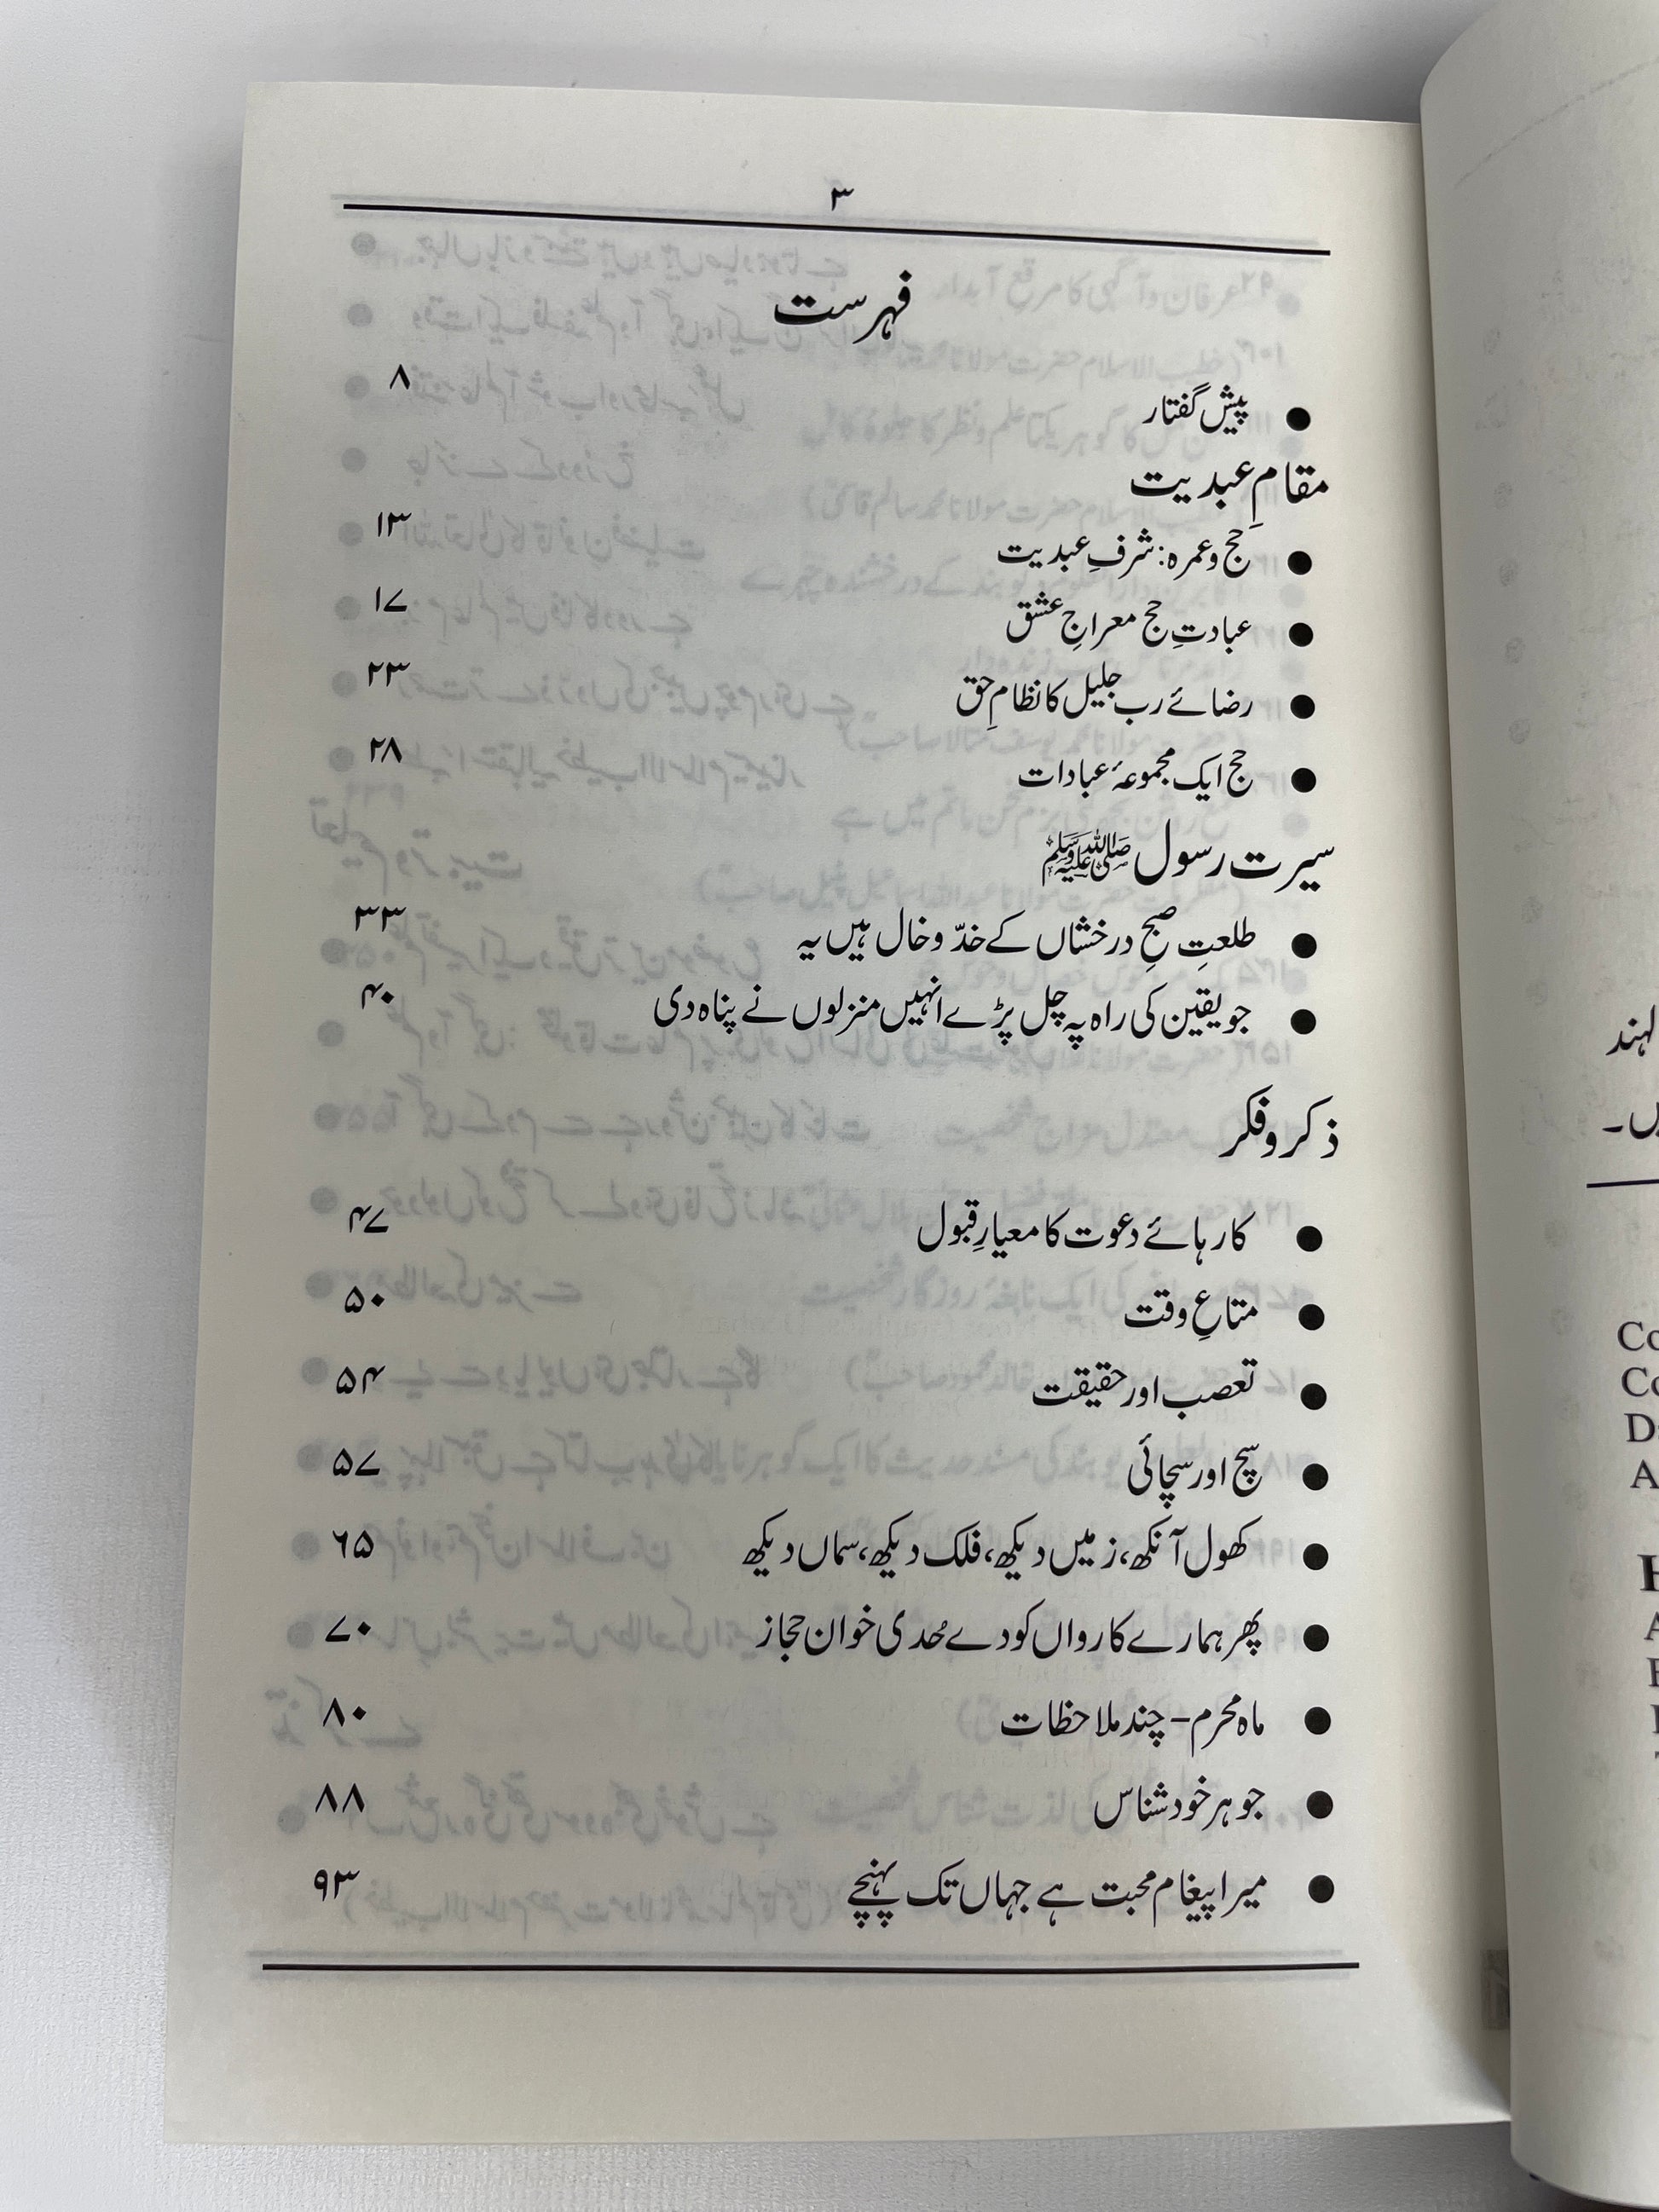 ۳
فہرست
● پیش گفتار ۸
مقامِ عبدیت
● حج و عمرہ: شرفِ عبدیت ۱۳
● عبادتِ حج معراجِ عشق ۱۷
● رضائے رب جلیل کا نظامِ حق ۲۳
● حج ایک مجموعۂ عبادات ۲۸
سیرت رسول ﷺ
● طلعتِ صبحِ درخشاں کے خدّ و خال ہیں یہ ۳۳
● جو یقین کی راہ پہ چل پڑے انہیں منزلوں نے پناہ دی ۴۰
ذکر و فکر
● کارہائے دعوت کا معیارِ قبول ۴۷
● متاعِ وقت ۵۰
● تعصب اور حقیقت ۵۴
● سچ اور سچائی ۵۷
● کھول آنکھ، زمیں دیکھ، فلک دیکھ، سماں دیکھ ۶۵
● پھر ہمارے کارواں کو دے حُدی خوان حجاز ۷۰
● ماہ محرم – چند ملاحظات ۸۰
● جوہر خود شناس ۸۸
● میرا پیغام محبت ہے جہاں تک پہنچے ۹۳
لہند
یں۔
Co
Co
D
A